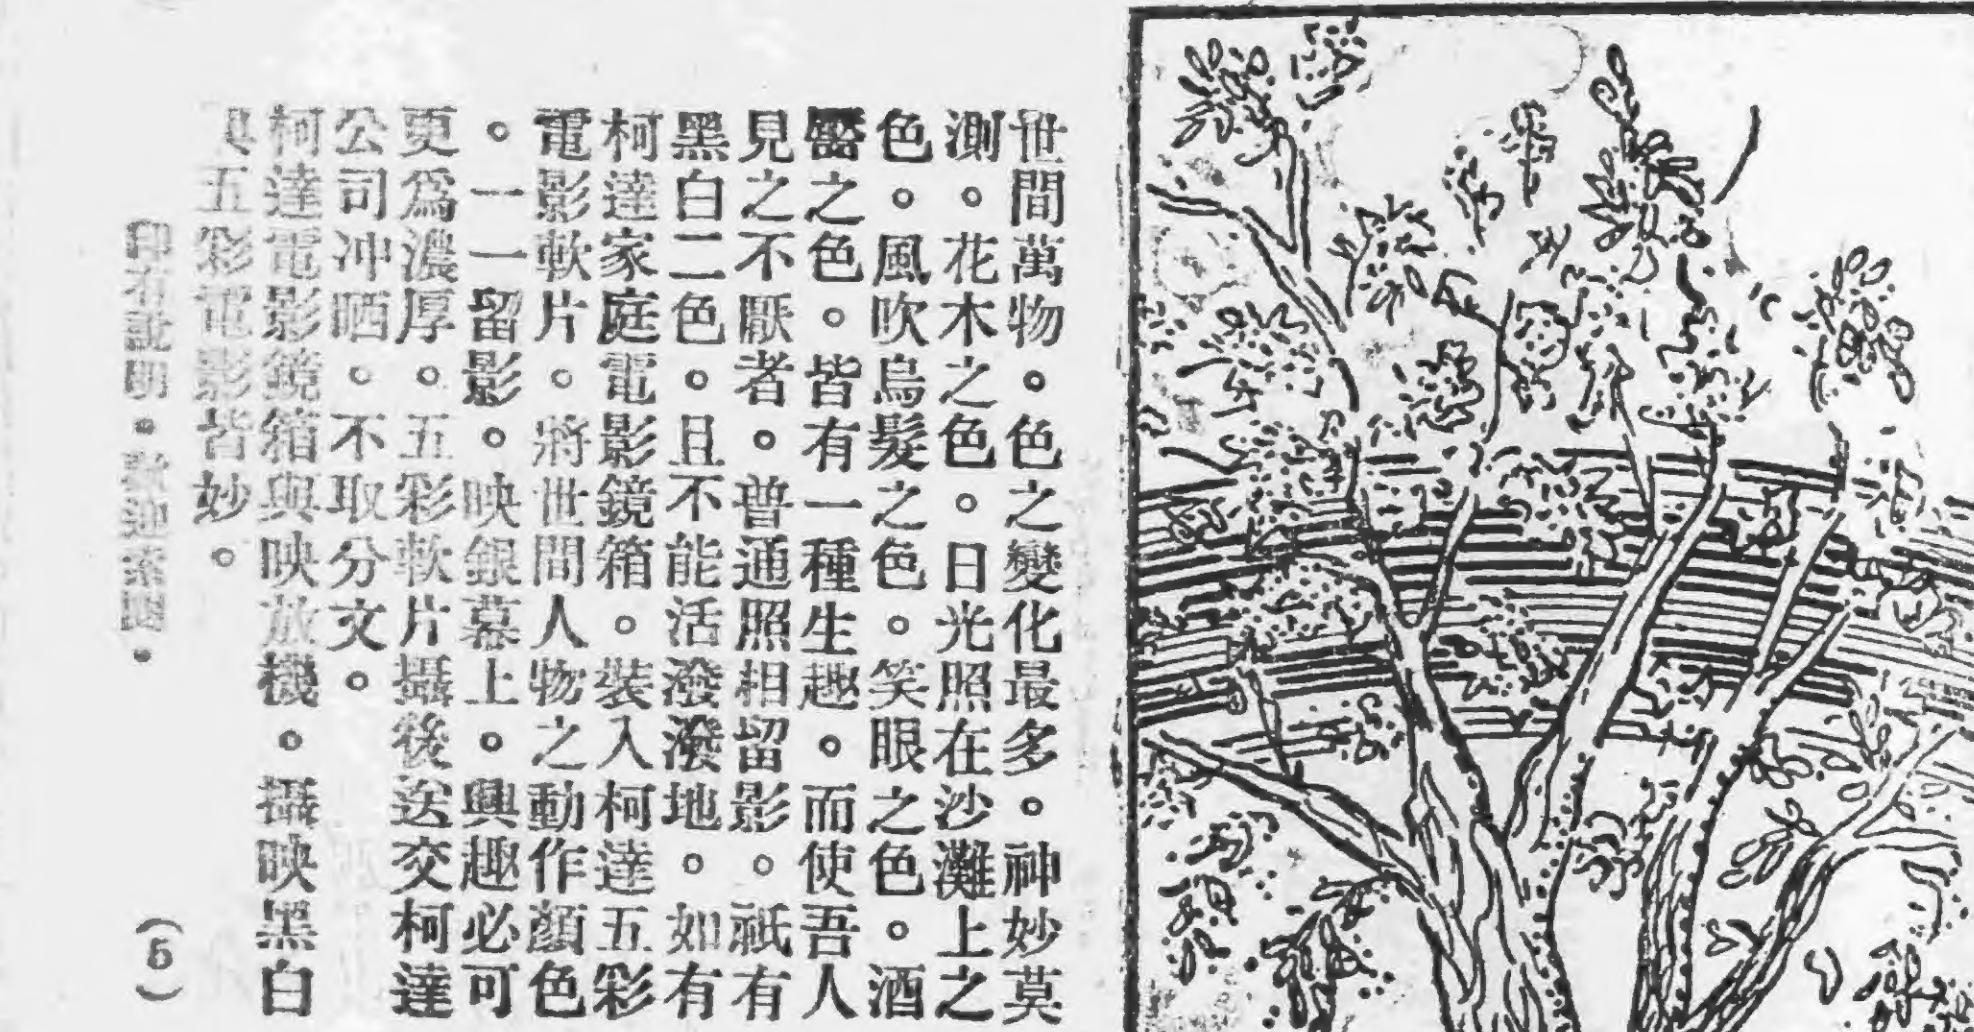 世間萬物。色之變化最多。神妙莫
測。花木之色。日光照在沙灘上之
色。風吹烏髮之色。笑眼之色。酒
靨之色。皆有一種生趣。而使吾人
見之不厭者。普通照相留影。祇有
黑白二色。且不能活潑潑地。如有
柯達家庭電影鏡箱。裝入柯達五彩
電影軟片。將世間人物之動作顏色
。一一留影。映銀幕上。興趣必可
更爲濃厚。五彩軟片攝後送交柯達
公司冲晒。不取分文。
柯達電影鏡箱與映放機。攝映黑白
與五彩電影皆妙。
印有說明。歡迎索閱。
(5)